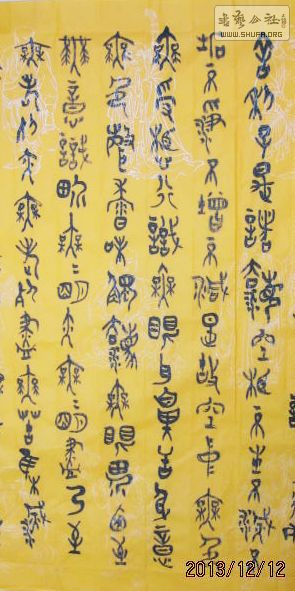 書藝公社
WWW.SHUFA.ORG
舍利子是諸法空相不生不滅不
垢不淨不增不減是故空中無色
無受想行識無眼耳鼻舌身意
無色聲香味觸法無眼界乃至
無意識界無無明亦無無明盡乃至
無老死亦無老死盡無苦集滅
2013/12/12